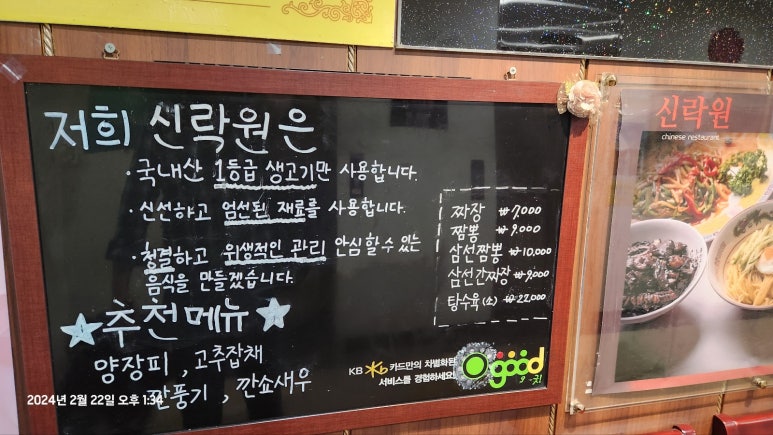 저희 신락원은
· 국내산 1등급 생고기만 사용합니다.
· 신선하고 엄선된 재료를 사용합니다.
· 청결하고 위생적인 관리 안심할 수 있는
음식을 만들겠습니다.
짜장 ₩7,000
짬뽕 ₩9,000
삼선짬뽕 ₩10,000
삼선간짜장 ₩9,000
탕수육(소) ₩22,000
★추천메뉴★
양장피, 고추잡채
깐풍기, 깐쇼새우
KB 카드만의 차별화된
서비스를 경험하세요!
good
신락원
chinese restaurant
2024년 2월 22일 오후 1:34